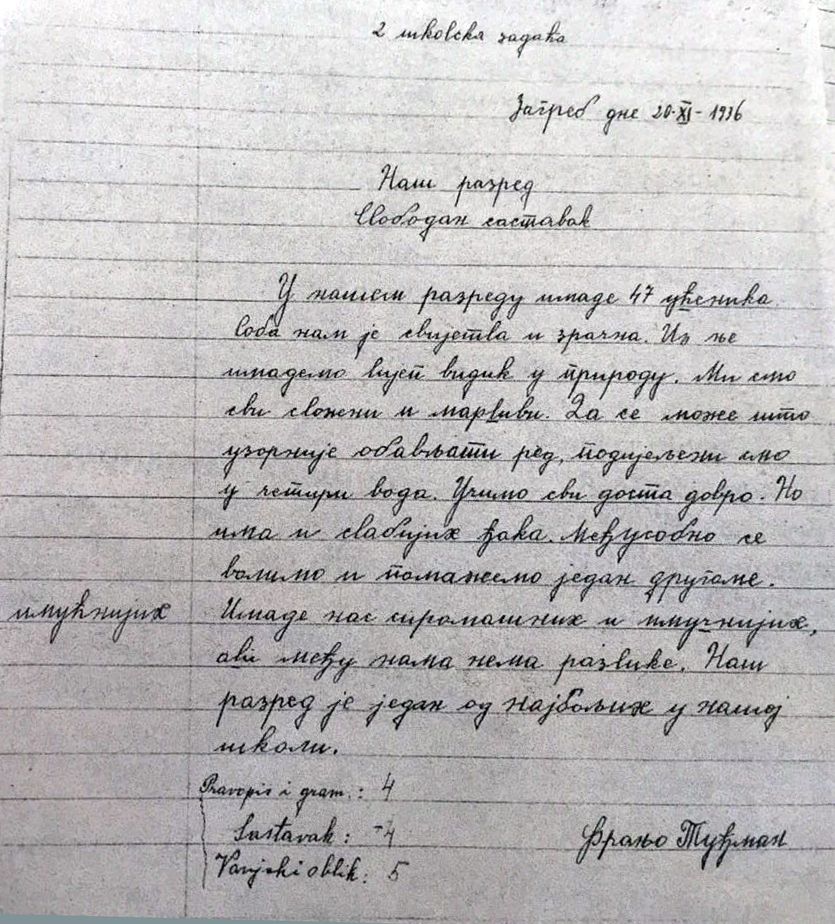 2 школска задаћа
Загреб дне 20-XI-1936
Наш разред
Слободан саставак
У нашем разреду имаде 47 ућеника.
Соба нам је свијетла и зрачна. Из ње
имадемо лијеп видик у природу. Ми смо
сви сложни и марливи. Да се може што
узорније обављати ред, подијељени смо
у четири вода. Учимо сви доста добро. Но
има и слабијих ђака. Међусобно се
волимо и помажемо један другоме.
имућнијих Имаде нас сиромашних и имучнијих,
али међу нама нема разлике. Наш
разред је један од најбољих у нашој
школи.
Pravopis i gram.: 4
Sastavak: -4
Vanjski oblik: 5
Фрањо Туђман